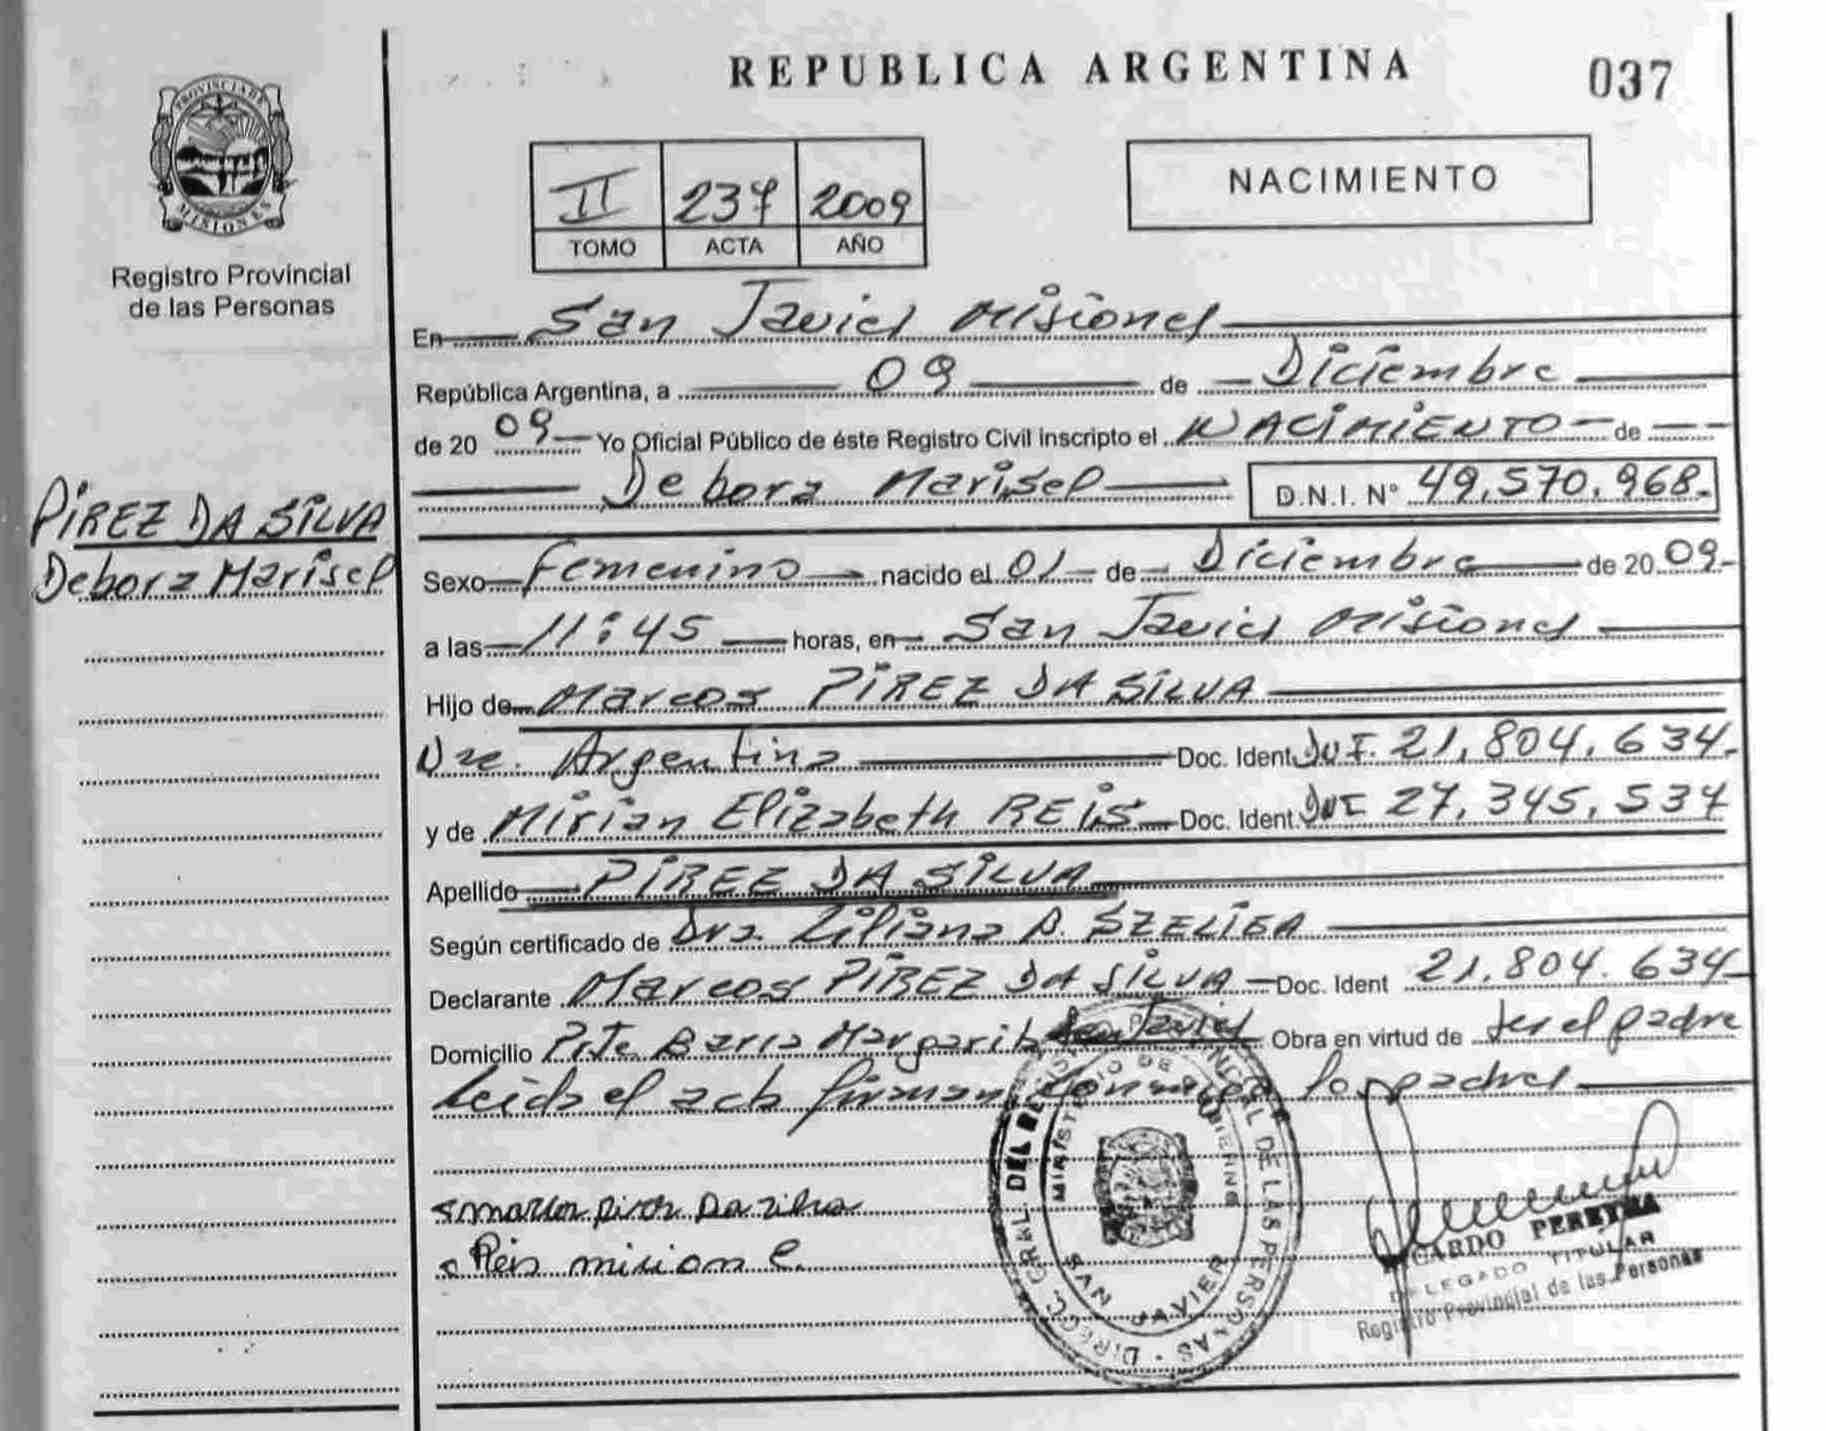 REPUBLICA ARGENTINA
037
PROVINCIA DE MISIONES
Registro Provincial
de las Personas
II 237 2009
TOMO ACTA AÑO
NACIMIENTO
En San Javier Misiones
República Argentina, a 09 de Diciembre
de 20 09 Yo Oficial Público de éste Registro Civil inscripto el NACIMIENTO de
Debora Marisel D.N.I. Nº 49.570.968.
PIREZ DA SILVA
Debora Marisel
Sexo Femenino nacido el 01 de Diciembre de 20 09
a las 11:45 horas, en San Javier Misiones
Hijo de Marcos PIREZ DA SILVA
Nac. Argentina Doc. Ident. DNI. 21.804.634.
y de Mirian Elizabeth REIS Doc. Ident. DNI 27.345.537
Apellido PIREZ DA SILVA
Según certificado de Dra. Liliana B. SZELIGA
Declarante Marcos PIREZ DA SILVA Doc. Ident 21.804.634
Domicilio Pje. Barrio Margarita San Javier Obra en virtud de ser el padre
Leida el acta firman conmigo los padres
Reis mirian E.
DIRECC. GRAL. DEL REG. PROVINCIAL DE LAS PERSONAS
MINISTERIO DE GOBIERNO
SAN JAVIER
RICARDO PEREYRA
DELEGADO TITULAR
Registro Provincial de las Personas